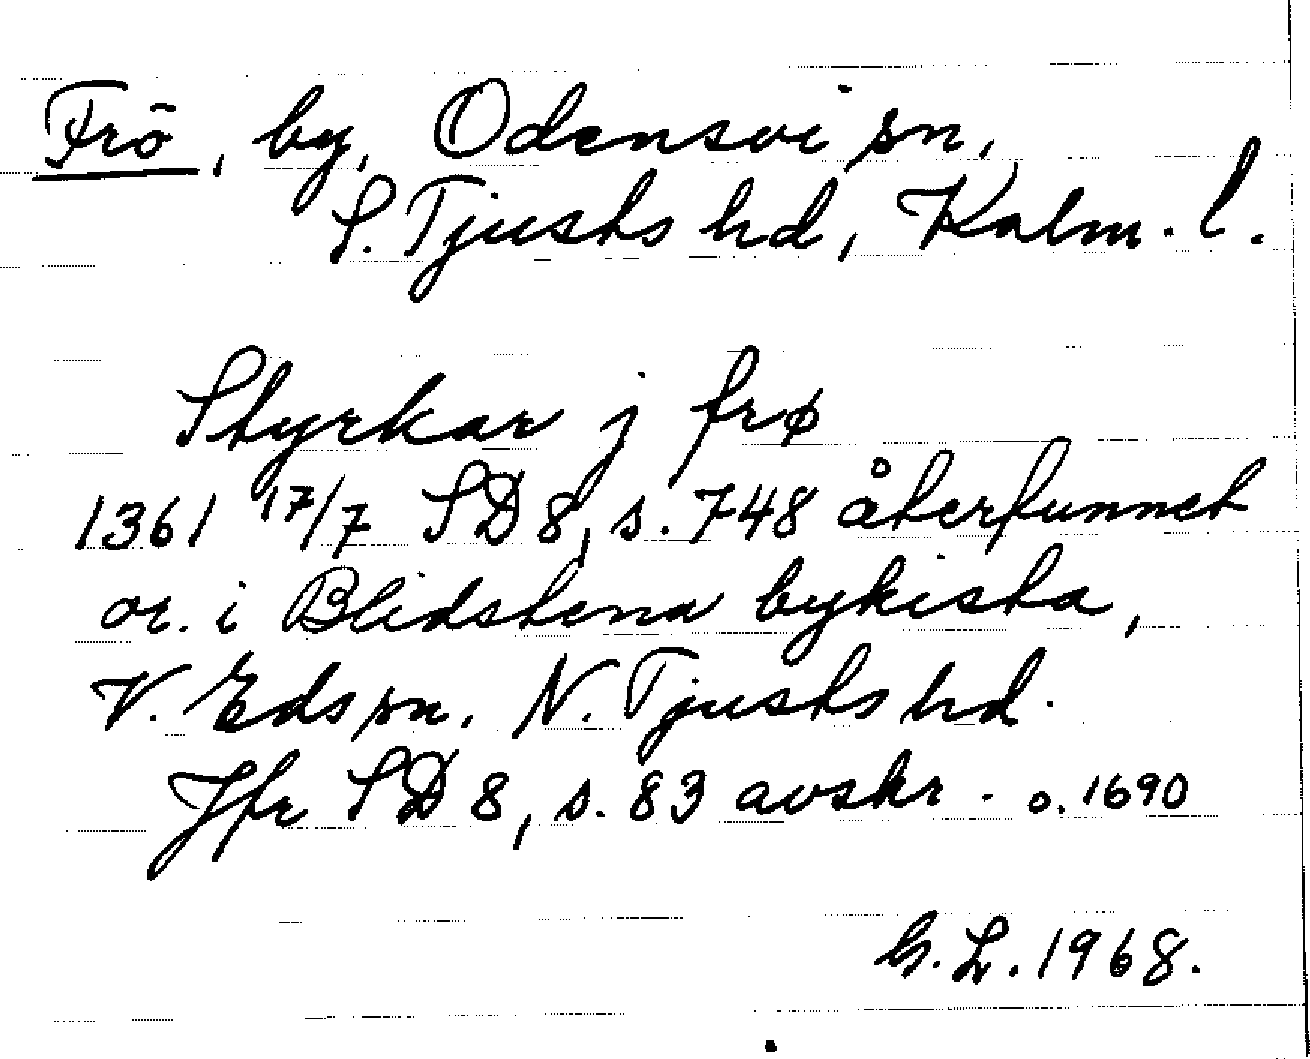 Frö, by, Odensvi sn,
S. Tjusts hd, Kalm. l.
Styrkar j frø
1361 17/7 SD 8, s. 748 återfunnet
or. i Blidstena bykista,
V. Eds sn. N. Tjusts hd.
Jfr SD 8, s. 83 avskr. o. 1690
G. L. 1968.